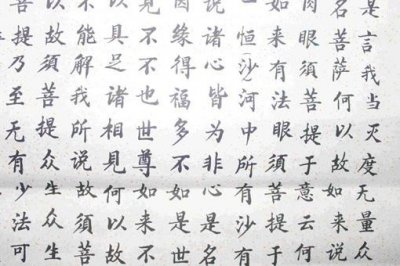 是言我当灭度无量众
名菩萨何以故如来说
肉眼須菩提于意云何
如来有法眼須菩提于
一恒沙河中所有沙有
说諸心皆为非心是名
因缘得福多不如是世
見不不也世尊如来不
以具足諸相見何以故
不能解我所说故須菩
以故須菩提众生众生
菩提乃至无有少法可